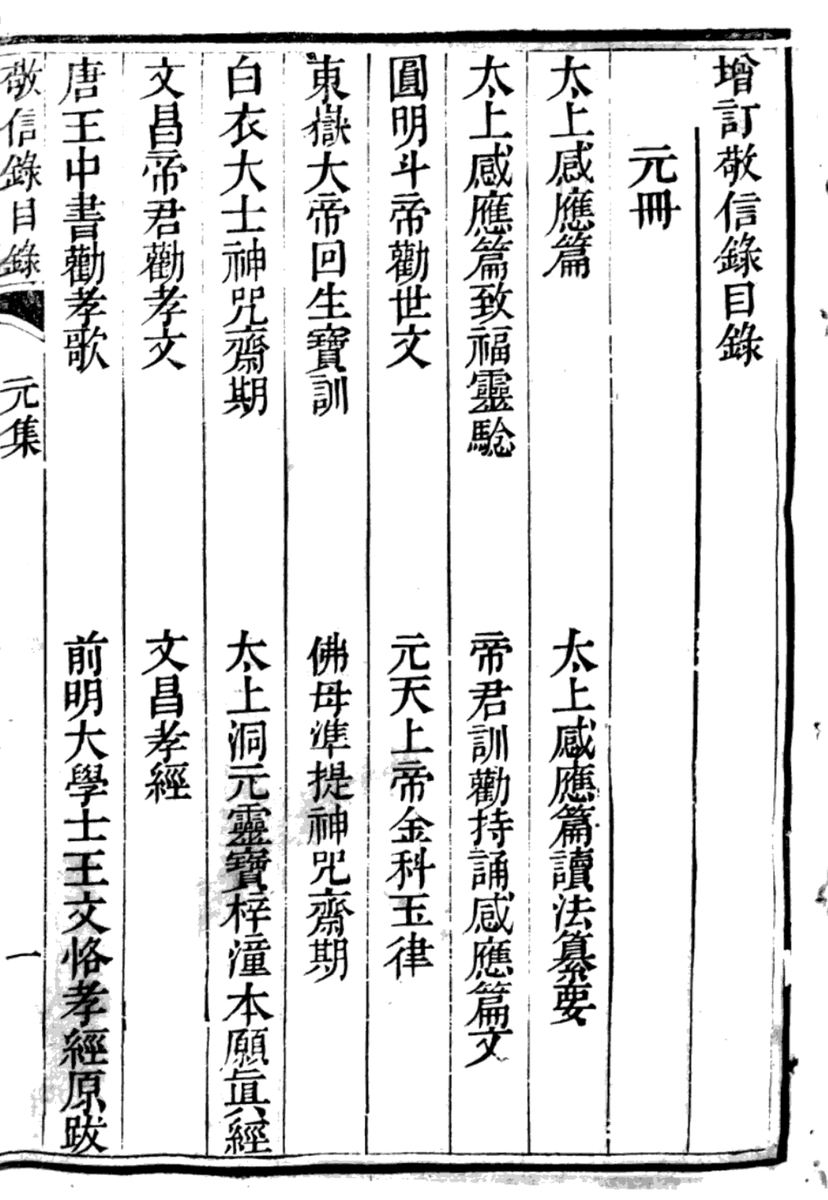 增訂敬信錄目錄
元冊
太上感應篇 太上感應篇讀法纂要
太上感應篇致福靈驗 帝君訓勸持誦感應篇文
圓明斗帝勸世文 元天上帝金科玉律
東嶽大帝回生寶訓 佛母準提神咒齋期
白衣大士神咒齋期 太上洞元靈寶梓潼本願眞經
文昌帝君勸孝文 文昌孝經
唐王中書勸孝歌 前明大學士王文恪孝經原跋
敬信錄目錄 元集 一